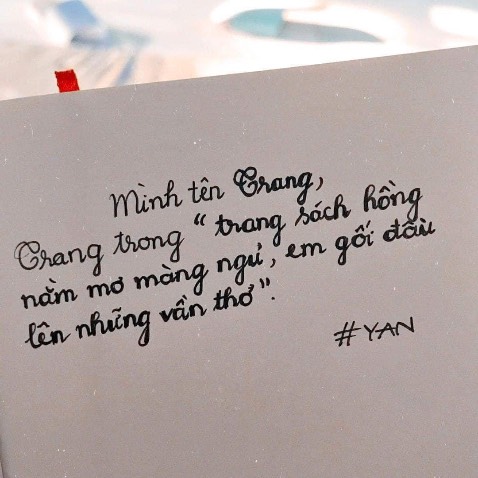 Mình tên Trang,
Trang trong "trang sách hồng
nằm mơ màng ngủ, em gối đầu
lên những vần thơ".
#YAN